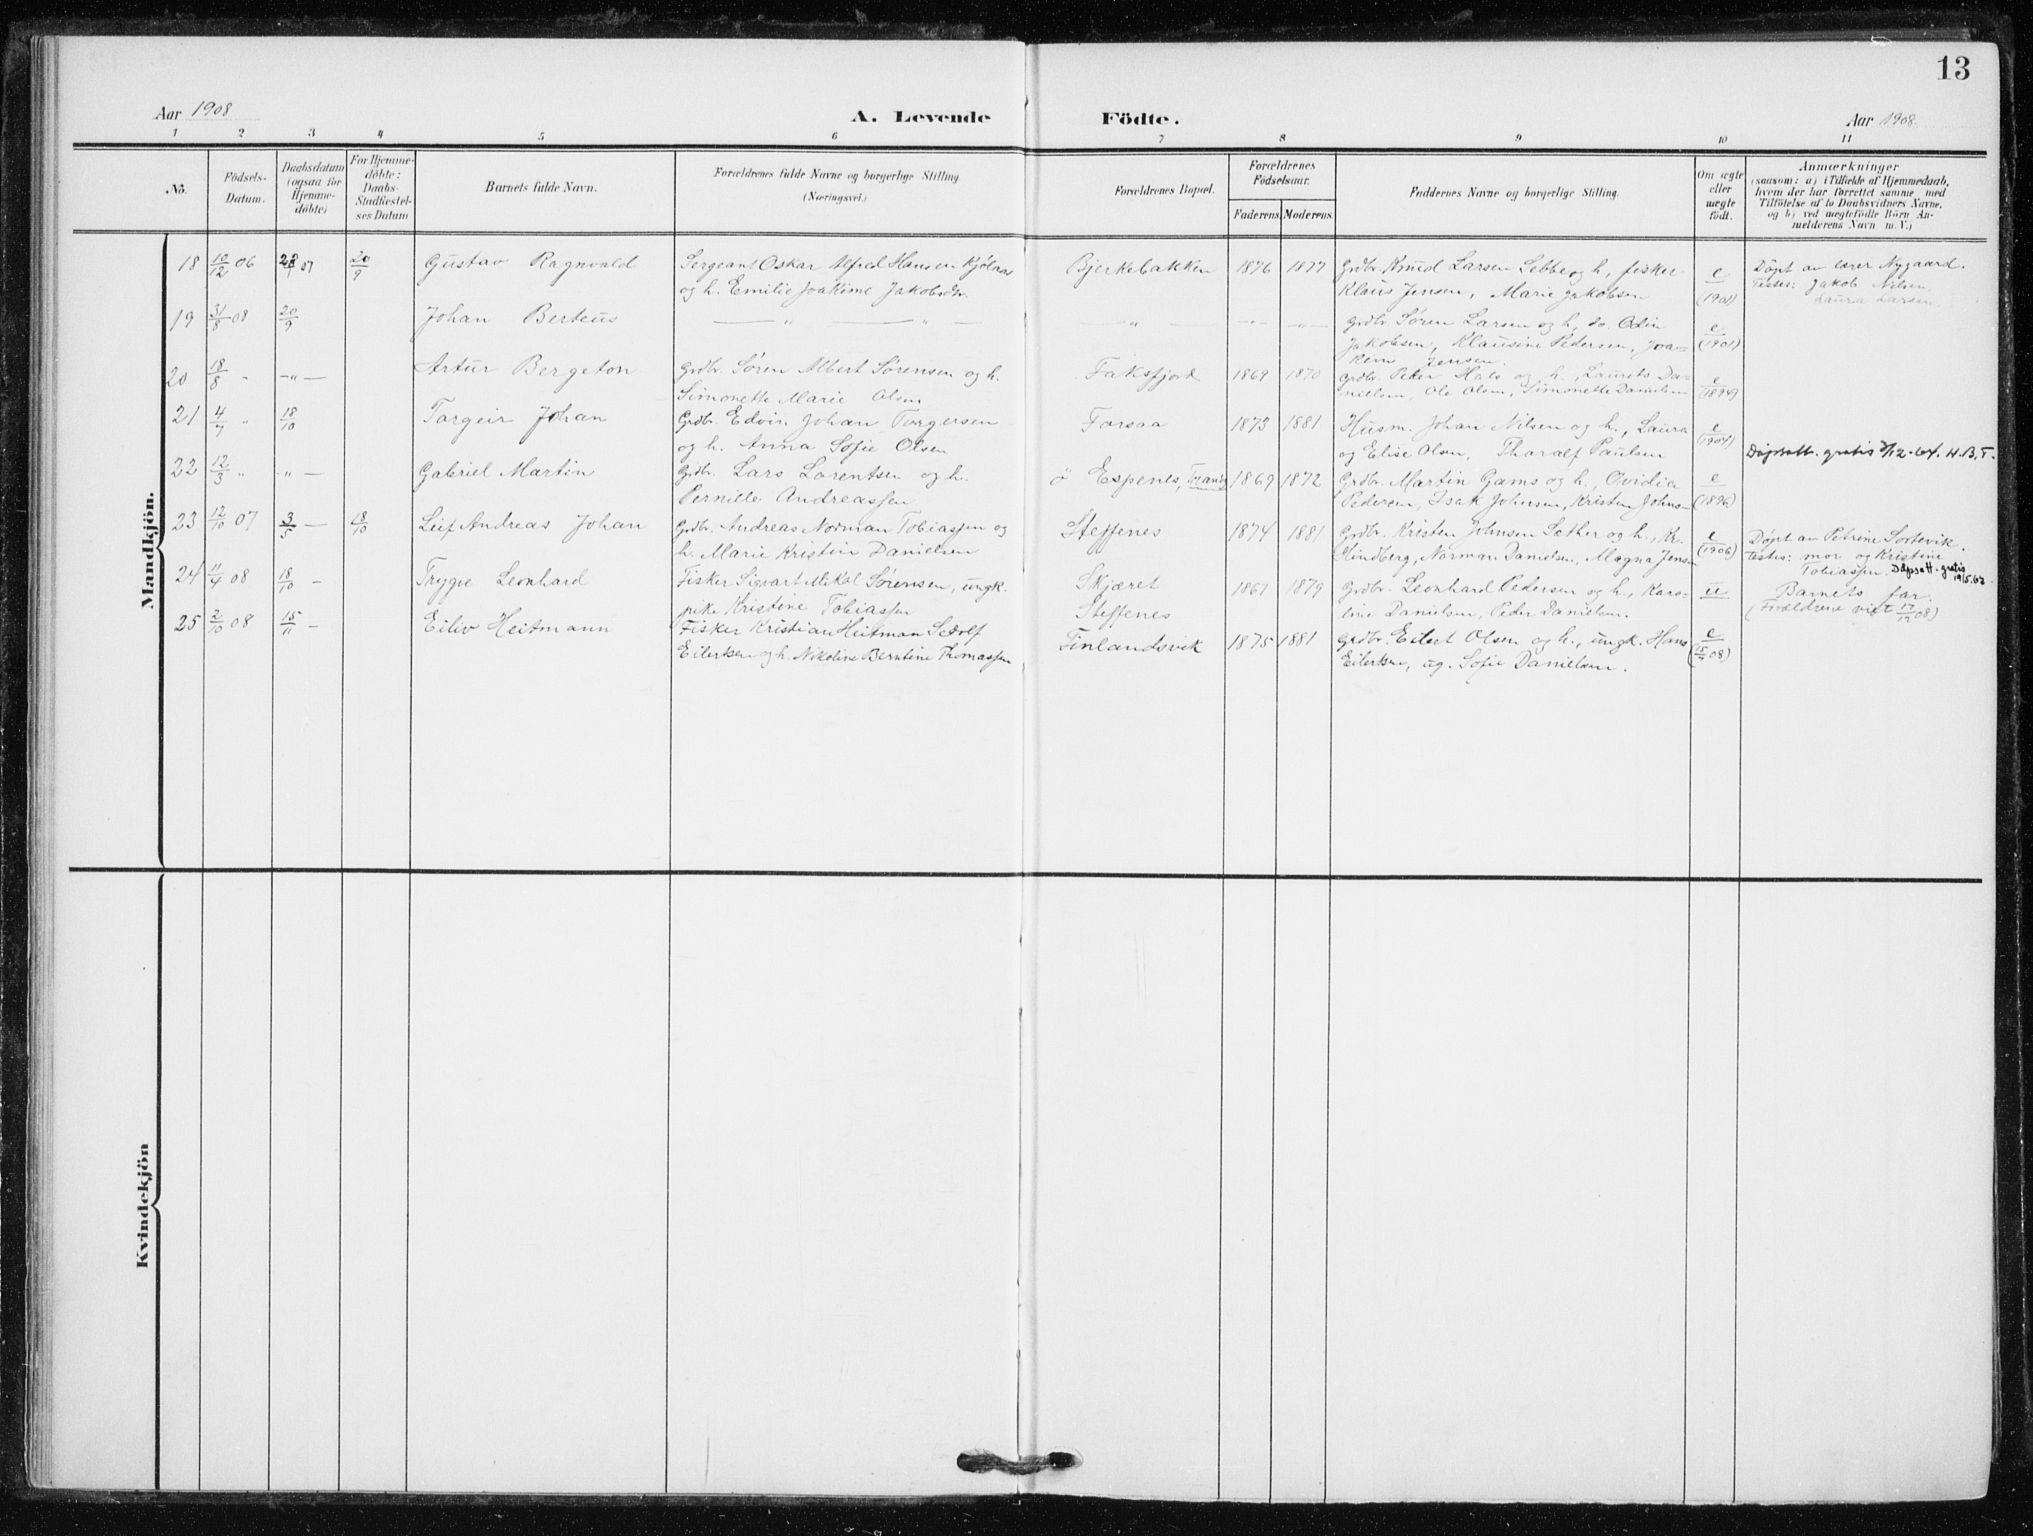 13
Aar 1908 A. Levende Födte. Aar 1908.
1 2 3 4 5 6 7 8 9 10 11
No.
Födsels-
Datum.
Daabsdatum
(ogsaa for
Hjemme-
döbte)
For Hjemme-
döbte:
Daabs-
Stadfæstel-
ses Datum
Barnets fulde Navn.
Forældrenes fulde Navne og borgerlige Stilling
(Næringsvei.)
Forældrenes Bopæl.
Forældrenes
Födselsaar.
Faderens. Moderens.
Faddernes Navne og borgerlige Stilling.
Om ægte
eller
uægte
födt.
Anmærkninger
(saasom: a) i Tilfælde af Hjemmedaab,
hvem der har forrettet samme, med
Tilföielse af to Daabsvidners Navne,
og b) ved uægtefödte Börn An-
melderens Navn m. V.)
Mandkjön.
18 10/12 06 07 20/9 Gustav Ragnvald Sergeant Oskar Alfred Hansen Kjölnes Bjerkebakken 1876 1877 Grdbr. Knud Larsen Sebbe og h, fisker e Döpt av lærer Nygaard.
og h. Emilie Joakime Jakobsdr. Klaus Jensen, Marie Jakobsen (1901) Testes: Jakob Nilsen,
Laura Larsen
19 31/8 08 20/9 Johan Berteus — " — " — — " — — " — — " — Grdbr. Søren Larsen og h, do. Odin e
Jakobsen, Klausine Pedersen, Joa- (1901)
kim Jensen
20 18/8 " — " — Artur Bergeton Grdbr. Søren Albert Sørensen og h. Faksfjord 1869 1870 Grdbr. Peder Hals og h., Laurits Da- e
Simonette Marie Olsen nielsen, Ole Olsen, Simonette Danielsen (1894)
21 4/7 " 18/10 Torgeir Johan Grdbr. Edvin Johan Torgersen Forsaa 1873 1881 Husm. Johan Nilsen og h., Laura e
og h. Anna Sofie Olsen og Elise Olsen, Tharalf Paulsen (1904) Dåpsatt. gratis /12-64. H.B.T.
22 12/3 " " — Gabriel Martin Grdbr. Lars Lorentsen og h. ö Espenes, Tranö 1869 1872 Grdbr. Martin Gams og h., Ovidia e
Pernille Andreassen Pedersen, Isak Johnsen, Kristen Johns- (1896)
23 12/10 07 3/5 — 18/10 Leif Andreas Johan Grdbr. Andreas Norman Tobiassen og Steffenes 1874 1881 Grdbr. Kristen Johnsen Sæther og h., Kr. e Döpt av Petrine Sortevik.
h. Marie Kristin Danielsen Lindberg, Norman Danielsen, Magna Jensen (1906) Testes: mor og Kristine
Tobiassen. Dåpsatt. gratis
19/5.62
24 11/4 08 18/10 — Trygve Leonhard Fisker Sigvart Mikal Sørensen, ungk. Skjæret 1867 1879 Grdbr. Leonhard Pedersen og h., Karo- u Barnets far.
pike Kristine Tobiassen Steffenes line Danielsen, Peder Danielsen. (Forældrene viet 17/12 08)
25 2/10 08 15/11 — Eiliv Heitmann Fisker Kristian Heitman Sedolf Finlandsvik 1875 1881 Grdbr. Eilert Olsen og h., ungk. Hans e
Eilertsen og h. Nikoline Berntine Thomassen Eilertsen, ug. Sofie Danielsen. (15/ 08)
Kvindekjön